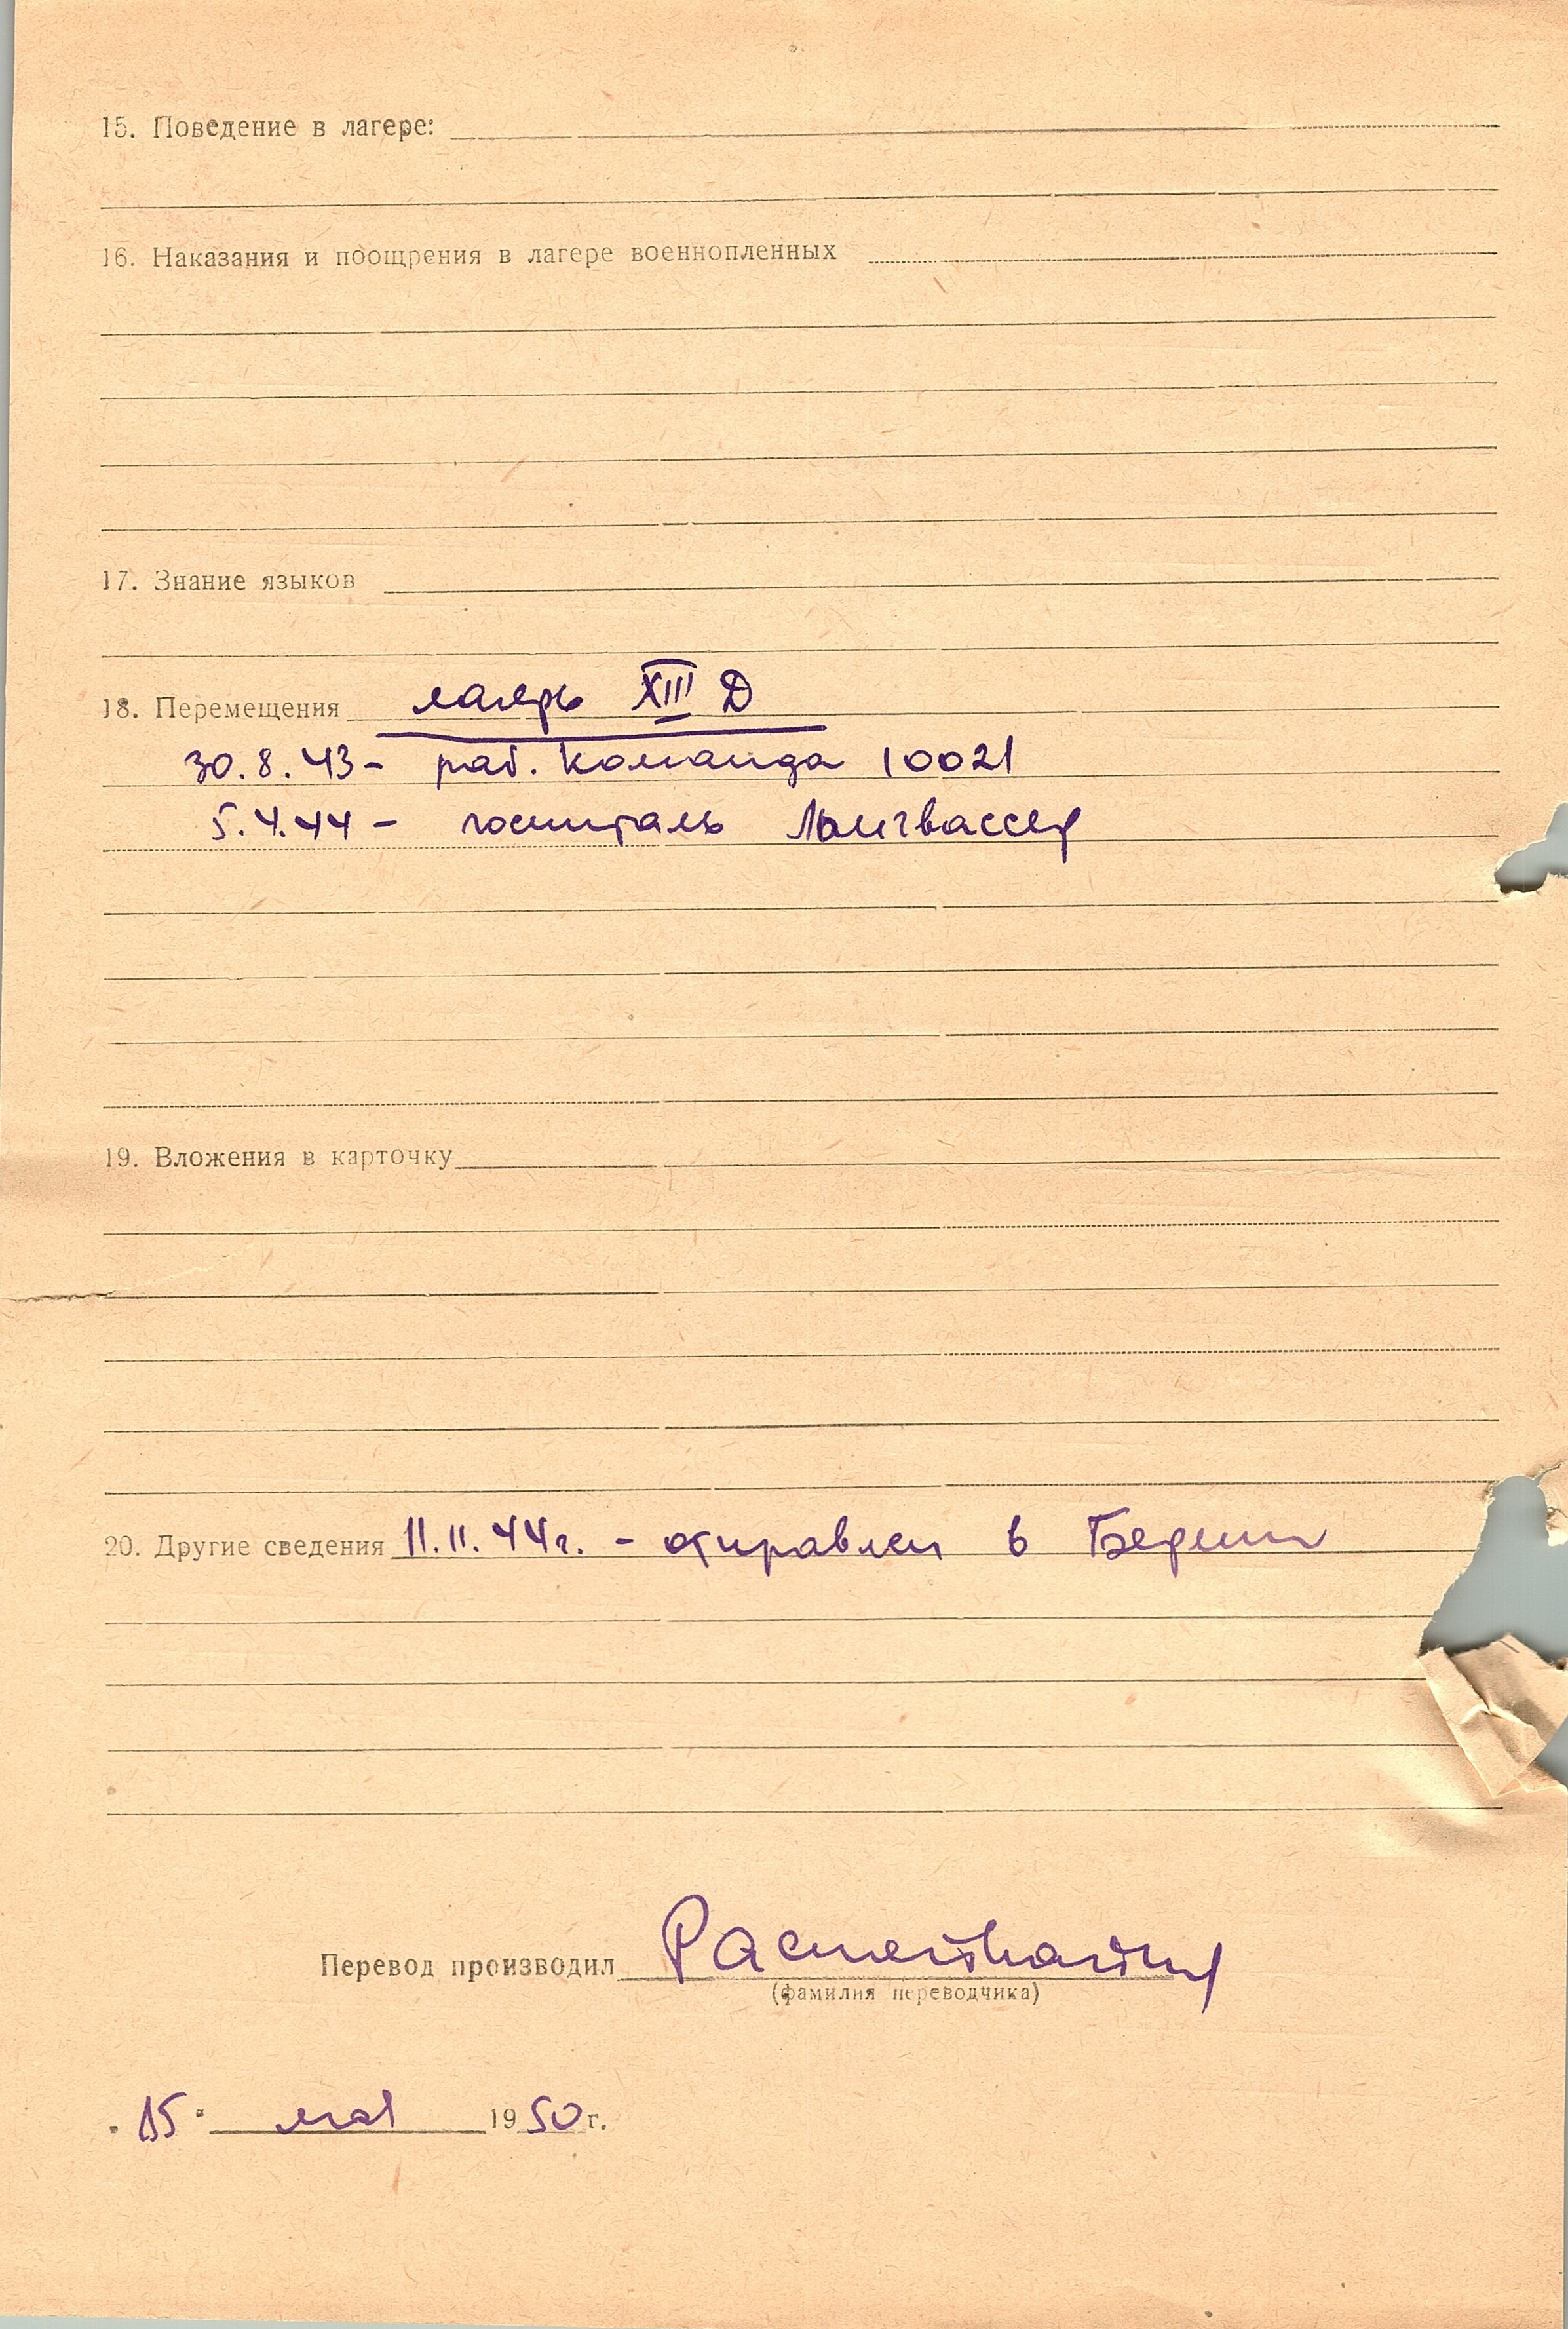 15. Поведение в лагере:
16. Наказания и поощрения в лагере военнопленных
17. Знание языков
18. Перемещения лагерь XIII Д
30.8.43 - раб. команда 10021
5.4.44 - госпиталь Лангвассер
19. Вложения в карточку
20. Другие сведения 11.11.44г. - отправлен в Берлин
Перевод производил
(фамилия переводчика)
"15" мая 1950 г.